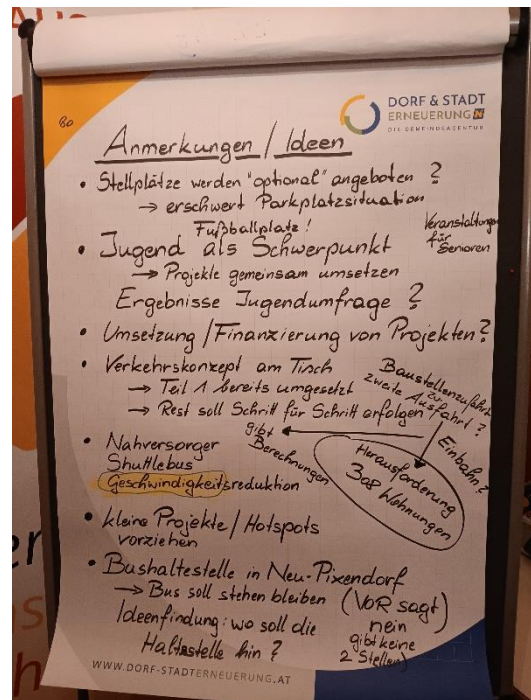 80
DORF & STADT
ERNEUERUNG N
DIE GEMEINDEAGENTUR
Anmerkungen / Ideen
• Stellplätze werden "optional" angeboten ?
→ erschwert Parkplatzsituation
Fußballplatz!
Veranstaltungen
für
Senioren
• Jugend als Schwerpunkt
→ Projekte gemeinsam umsetzen
Ergebnisse Jugendumfrage ?
• Umsetzung / Finanzierung von Projekten?
• Verkehrskonzept am Tisch
→ Teil 1 bereits umgesetzt
→ Rest soll Schritt für Schritt erfolgen
Baustellenzufahrt
zu
zweite Ausfahrt?
Einbahn?
gibt
Berechnungen
Herausforderung
308 Wohnungen
• Nahversorger
Shuttlebus
Geschwindigkeitsreduktion
• kleine Projekte / Hotspots
vorziehen
• Bushaltestelle in Neu-Pixendorf
→ Bus soll stehen bleiben
(VOR sagt)
nein
gibt keine
2 Stellen
Ideenfindung: wo soll die
Haltestelle hin ?
WWW.DORF-STADTERNEUERUNG.AT